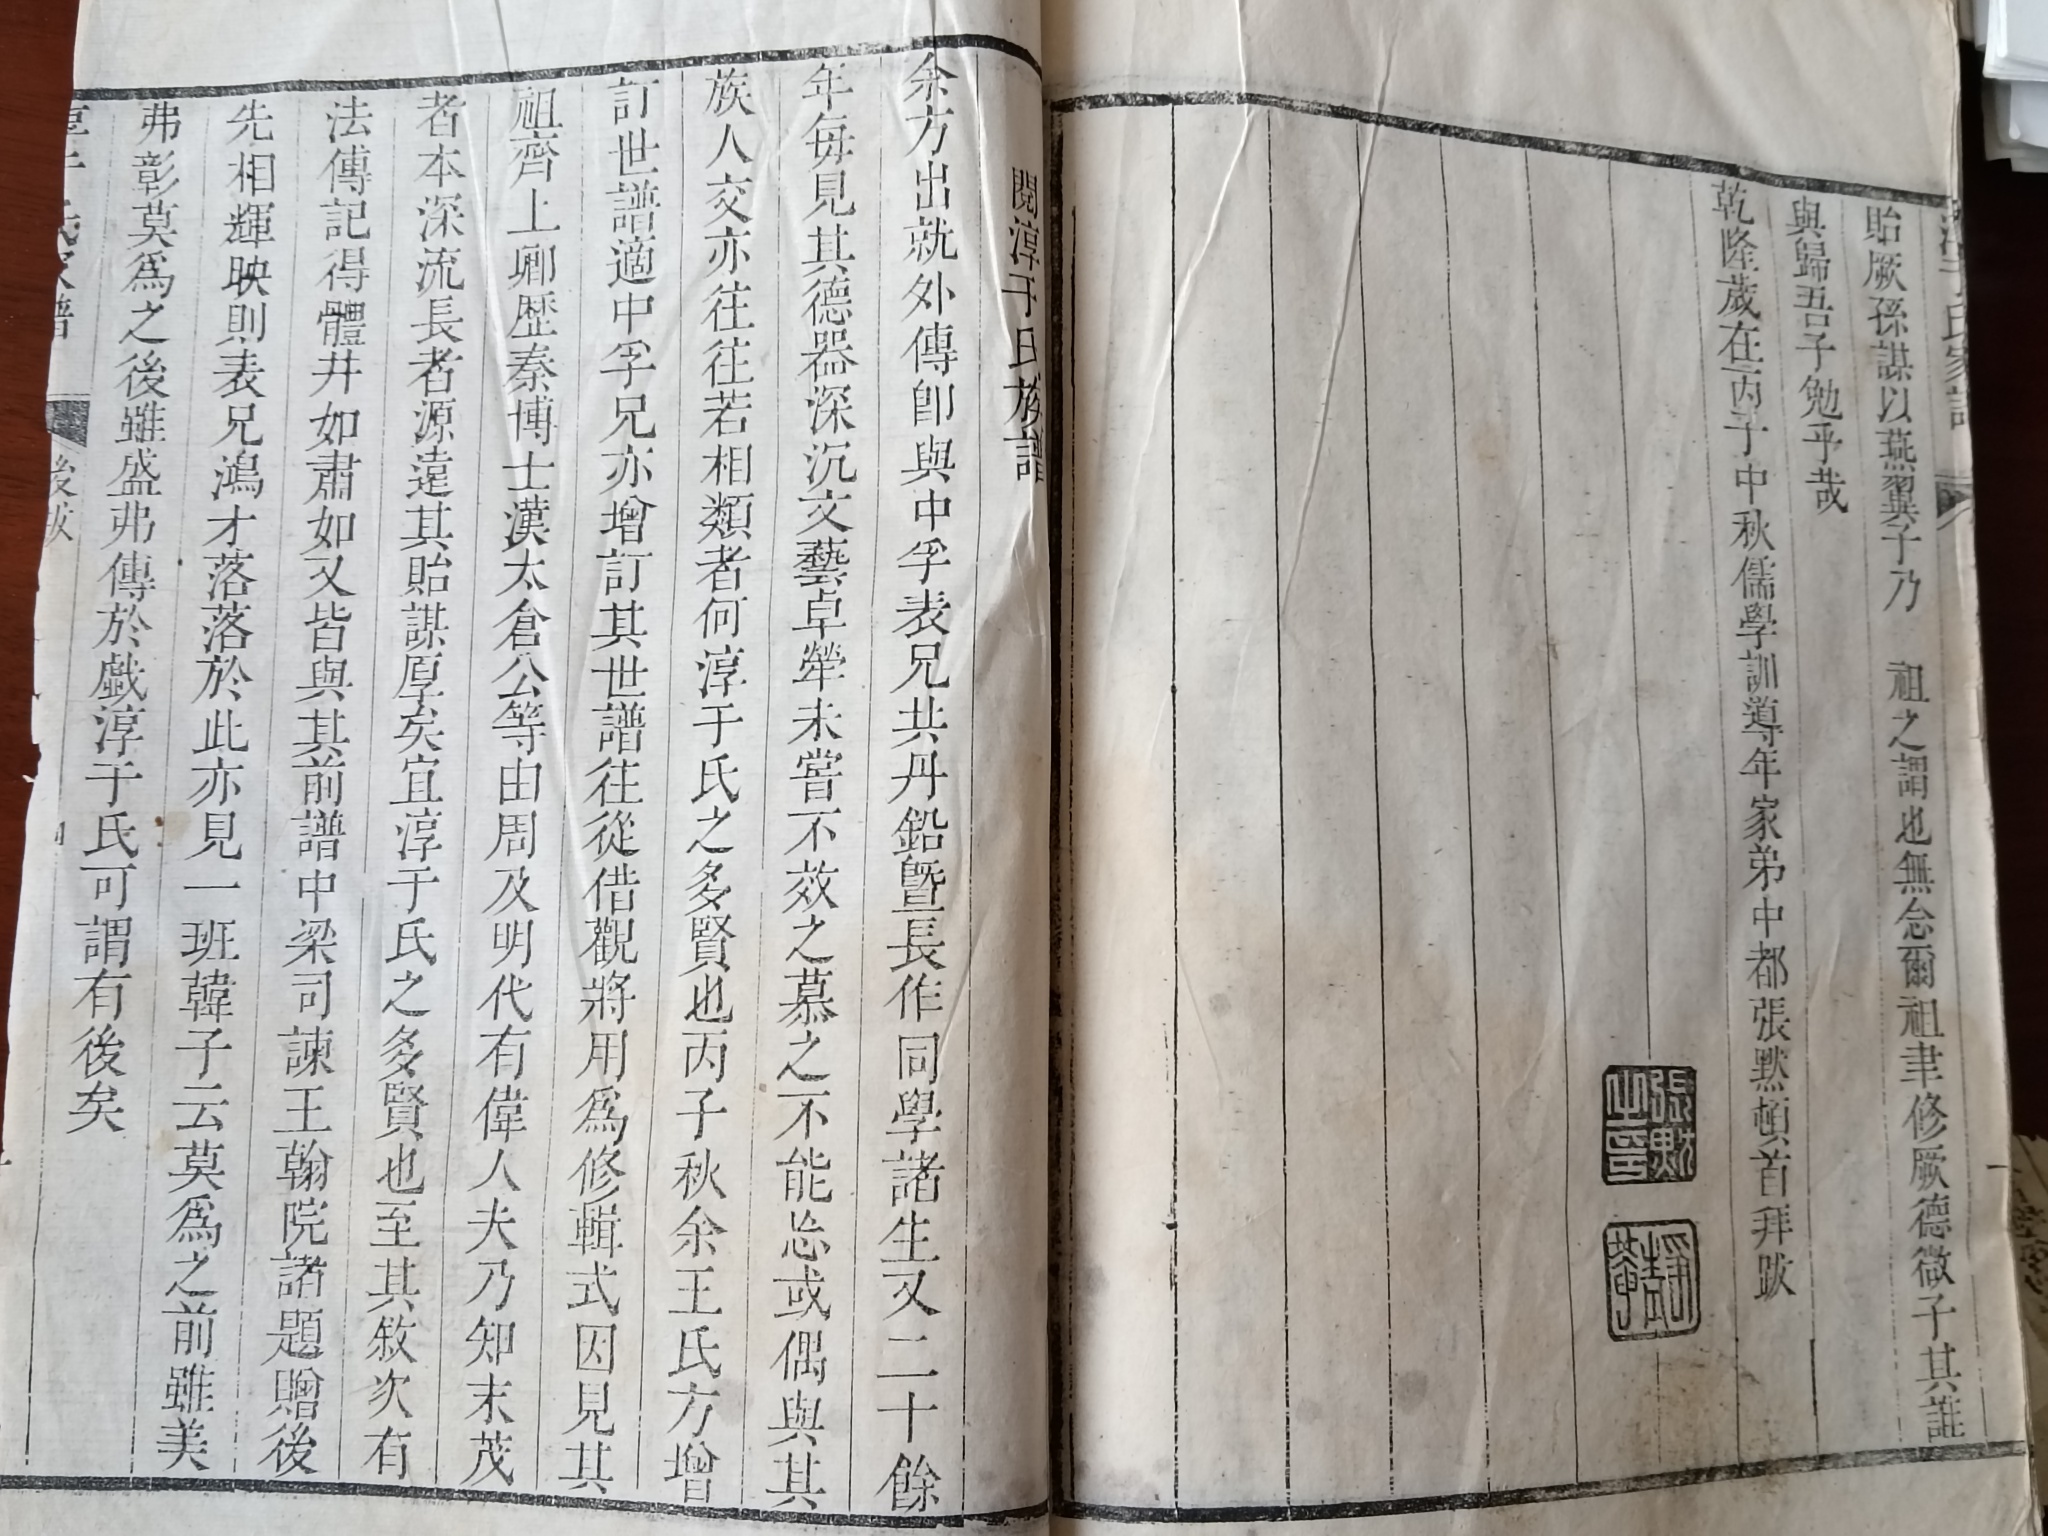 淳于氏家譜
貽厥孫謀以燕翼子乃 祖之謂也無念爾祖聿修厥德微子其誰
與歸吾子勉乎哉
乾隆歲在丙子中秋儒學訓導年家弟中都張黙頓首拜跋
張黙之印
閱淳于氏族譜
余方出就外傳卽與中孚表兄共丹鉛曁長作同學諸生又二十餘
年每見其德器深沉文藝卓犖未嘗不效之慕之不能忘或偶與其
族人交亦往往若相類者何淳于氏之多賢也丙子秋余王氏方增
訂世譜適中孚兄亦增訂其世譜往從借觀將用爲修輯式因見其
祖齊上卿歷秦博士漢太倉公等由周及明代有偉人夫乃知末茂
者本深流長者源遠其貽謀厚矣宜淳于氏之多賢也至其敘次有
法傳記得體井如肅如又皆與其前譜中梁司諫王翰院諸題贈後
先相輝映則表兄鴻才落落於此亦見一班韓子云莫爲之前雖美
弗彰莫爲之後雖盛弗傳於戲淳于氏可謂有後矣
淳于氏家譜
後跋